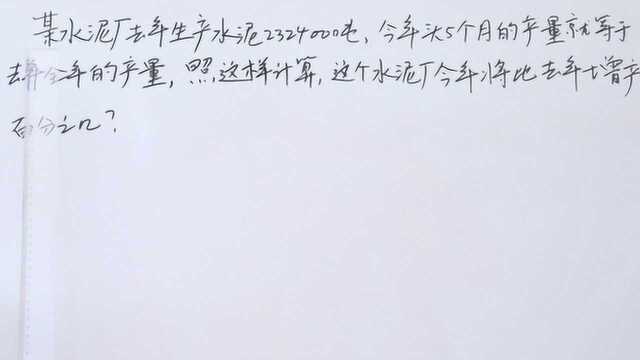 某水泥厂去年生产水泥2324000吨,今年头5个月的产量就等于
去年全年的产量,照这样计算,这个水泥厂今年将比去年增产
百分之几?